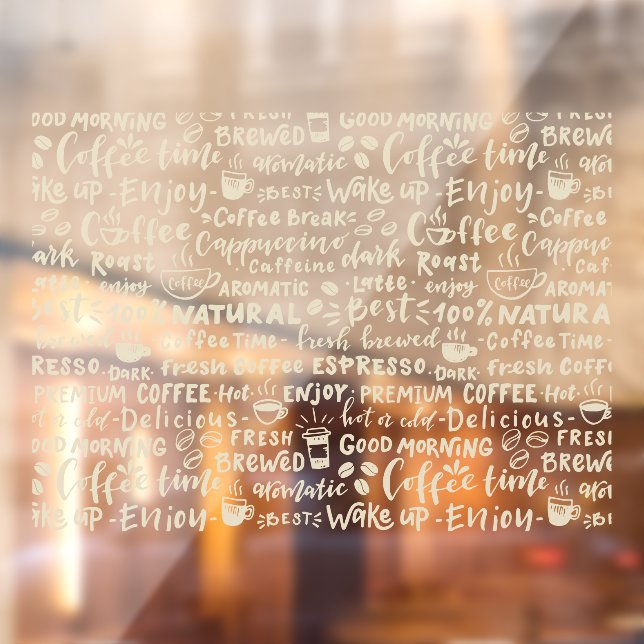 OOD MORNING FRESH GOOD MORNING FRES
BREWED BREWE
Coffee time aromatic Coffee time aro
ake up -Enjoy- BEST Wake up -Enjoy- BES
Coffee Coffee Break Coffee Coffee
dark Roast Cappuccino dark Roast Cappuc
Caffeine Caf
atte. enjoy Coffee AROMATIC .Latte. enjoy Coffee AROMAT
Best 100% NATURAL Best 100% NATURA
brewed -Coffee Time- fresh brewed -Coffee Time-
RESSO. DARK. Fresh Coffee ESPRESSO. DARK. Fresh Coffe
PREMIUM COFFEE. Hot. ENJOY. PREMIUM COFFEE. Hot.
ot or cold -Delicious- hot or cold -Delicious-
OOD MORNING FRESH GOOD MORNING FRES
BREWED BREWE
Coffee time aromatic Coffee time aro
ake up -Enjoy- BEST Wake up -Enjoy- BE